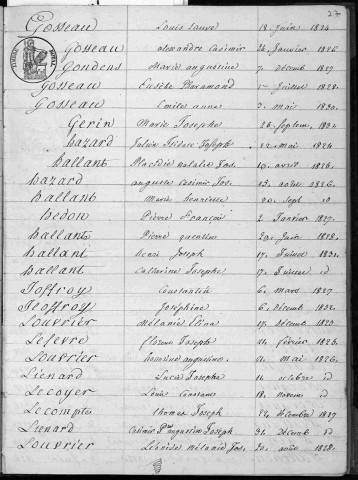 27
Gosseau Louis 18. Juin 1824
Gosseau alexandre Casimir 24. Janvier 1826
Gondens Marie augustine 7. décemb 1827
Gosseau Eusèbe Pharamond Juillet 1828
Gosseau Emile anne 3. mai 1830.
Gerin Marie Josephe 26. Septem. 1832
hazard Julien Joseph 22. mai 1824
hallant Placidie natalie Jos. 10. avril 1826.
hazard auguste Casimir Jos. 13. août 1826.
hallant Marie henriette 20. Sept d
hedou Pierre François 2 Janvier 1827.
hallant Pierre 29. Juin 1828.
hallant henri Joseph 17. Juillet 1831.
hallant Catherine Josephe 17. Juillet d
Joffroy Constantin 6. mars 1827
Jeoffroy Joséphine 6. décemb 1832
Louvrier Mélanie 17. décemb 1823
Lefevre florent Joseph 11. février 1825.
Louvrier augustine. 01. mai 1826.
Lienard Lucie Josephe 14. octobre d
Lecoyer Louis Constant 18. novem d
Lecompte thomas Joseph 22. décembre 1827
Lienard Casimir augustin Joseph 31. Décemb d
Louvrier mélanie Jos. 20. août 1828.